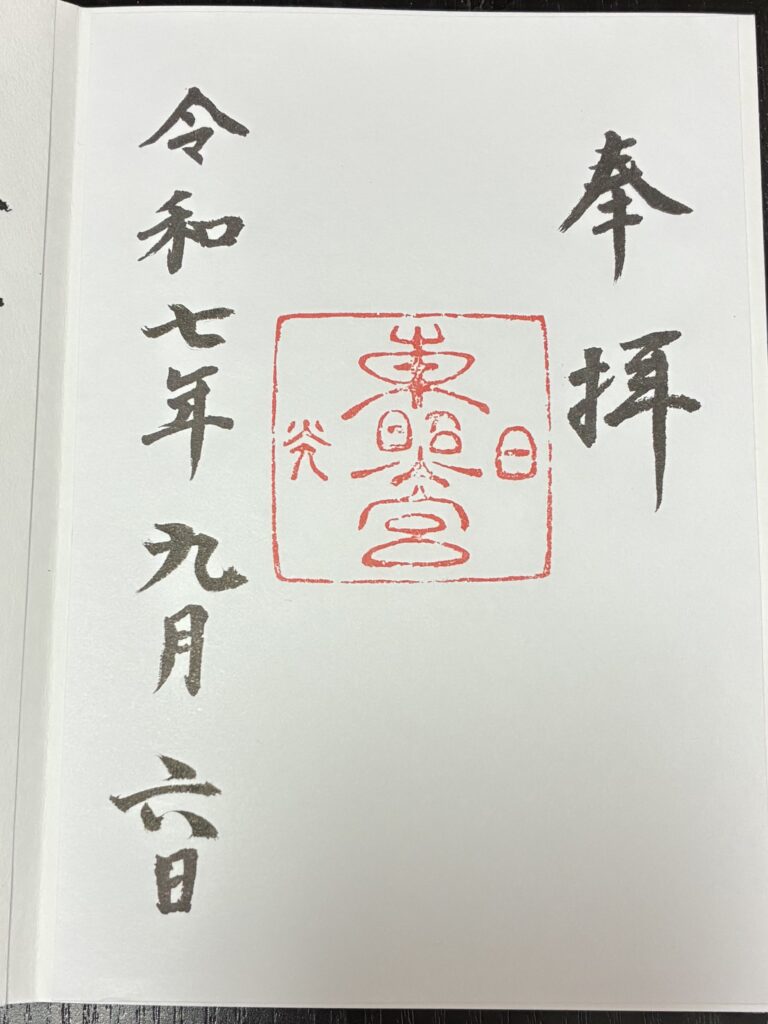 奉拝
日光
東照宮
令和七年九月六日